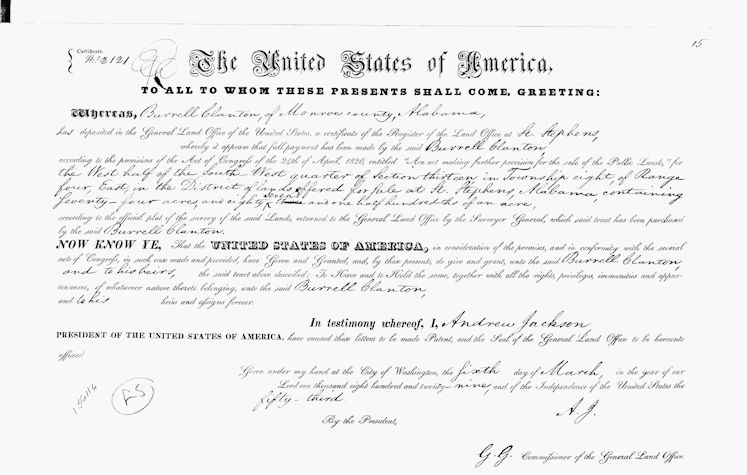 15
Certificate
No. 2121
The United States of America,
TO ALL TO WHOM THESE PRESENTS SHALL COME, GREETING:
Whereas, Burrell Clanton, of Monroe county, Alabama,
has deposited in the General Land Office of the United States, a certificate of the Register of the Land Office at St. Stephens,
whereby it appears that full payment has been made by the said Burrell Clanton,
according to the provisions of the Act of Congress of the 24th of April, 1820, entitled "An act making further provision for the sale of the Public Lands," for
the West half of the South-West quarter of Section thirteen in Township eight, of Range
four, East, in the District of lands offered for sale at St. Stephens, Alabama, containing
Seventy-four acres and eighty seven and one half hundredths of an acre,
according to the official plat of the survey of the said Lands, returned to the General Land Office by the Surveyor General, which said tract has been purchased
by the said Burrell Clanton.
NOW KNOW YE, That the UNITED STATES OF AMERICA, in consideration of the premises, and in conformity with the several
acts of Congress, in such case made and provided, have Given and Granted, and, by these presents, do give and grant, unto the said Burrell Clanton,
and to his heirs, the said tract above described: To Have and to Hold the same, together with all the rights, privileges, immunities and appur-
tenances, of whatsoever nature thereto belonging, unto the said Burrell Clanton,
and to his heirs and assigns forever.
In testimony whereof, I, Andrew Jackson
PRESIDENT OF THE UNITED STATES OF AMERICA, have caused these letters to be made Patent, and the Seal of the General Land Office to be hereunto
affixed
Given under my hand at the City of Washington, the sixth day of March, in the year of our
Lord one thousand eight hundred and twenty-nine, and of the Independence of the United States the
fifty-third
A.J.
By the President,
G.G. Commissioner of the General Land Office.